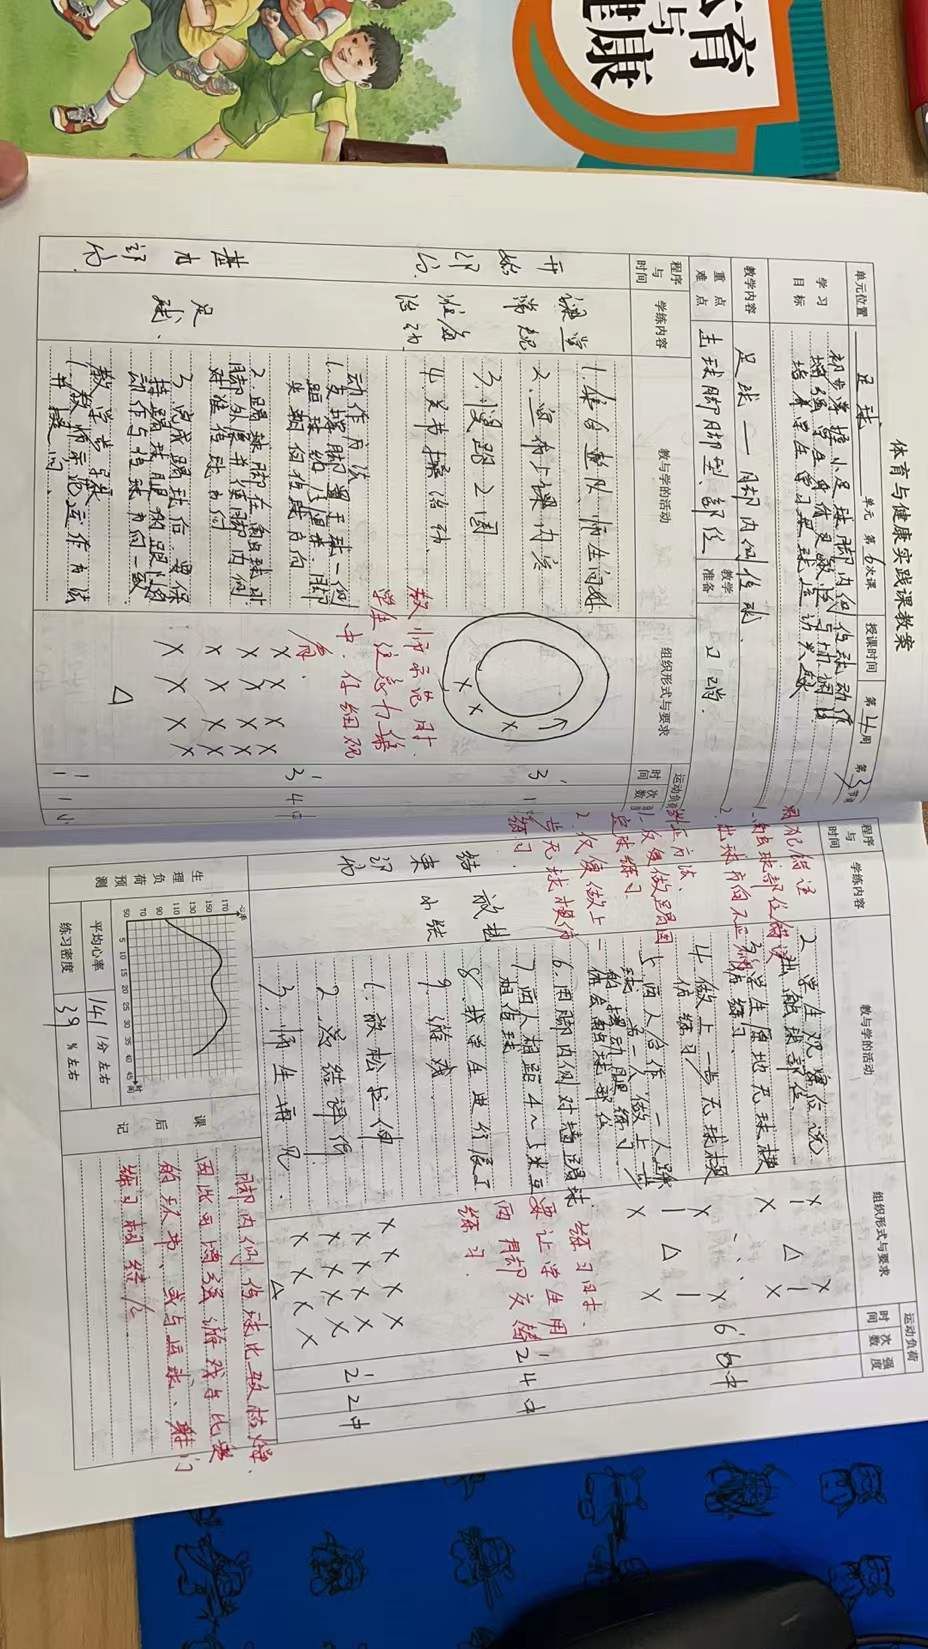 体育与健康实践课教案
单元位置 足球 单元 第6次课 授课时间 第4周 第3节课
学习目标
初步掌握小足球脚内侧传球动作
增强学生身体灵敏性与协调性
培养学生学习足球运动兴趣
教学内容 足球——脚内侧传球.
重点难点 击球脚脚型、部位 教学准备 口哨.
程序与时间 学练内容 教与学的活动 组织形式与要求 运动负荷
时间 次数 强度
开始部分.
课堂常规
准备活动
1.集合整队、师生问好.
2.宣布上课内容
3.慢跑2圈
4.关节操活动.
3 1
教师示范时.
学生注意力集
中.仔细观
看.
基本部分.
足球.
动作方法
1.支撑脚置于球一侧
距球约15厘米.脚
尖朝向传球方向
2.踢球脚在触球时
脚外展并使脚内侧
对准传球方向
3.完成踢球后.要保
持踢球腿的跟随
动作与传球方向一致.
3 4 中
教学步骤
1.教师示范动作方法
并提问.
1 1 小
程序与时间 学练内容 教与学的活动 组织形式与要求 运动负荷
时间 次数 强度
易犯错误
1.触球部位错误
2.出球方向不正确
纠正方法.
1.反复做踢固
定球练习.
2.反复做上一
步无球模仿
练习.
2.学生观察后说
出触球部位.
3.学生原地无球模
仿练习.
4.做上一步无球模
仿练习
5.两人合作.一人踩
球.另一人做上一步
的摆动腿练习.
体会触球部位
6.用脚内侧对墙踢球
7.两人相距4~5米互
相传球
8.找学生进行展示
9.游戏.
6 6 中
练习时.
要让学生用
两脚交替
练习.
2 4 中
结束部分
放松
小结
1.放松拉伸
2.总结评价.
3.师生再见.
2 2 中
生理负荷预测
心率
170
150
130
110
90
70
50
5 10 15 20 25 30 35 40 45 时间
平均心率 141 1分 左右
练习密度 39 % 左右
课后记
脚内侧传球比较枯燥.
因此可增强游戏与比赛
的环节、或与运球、射门
练习相结合.
体育
与
健康